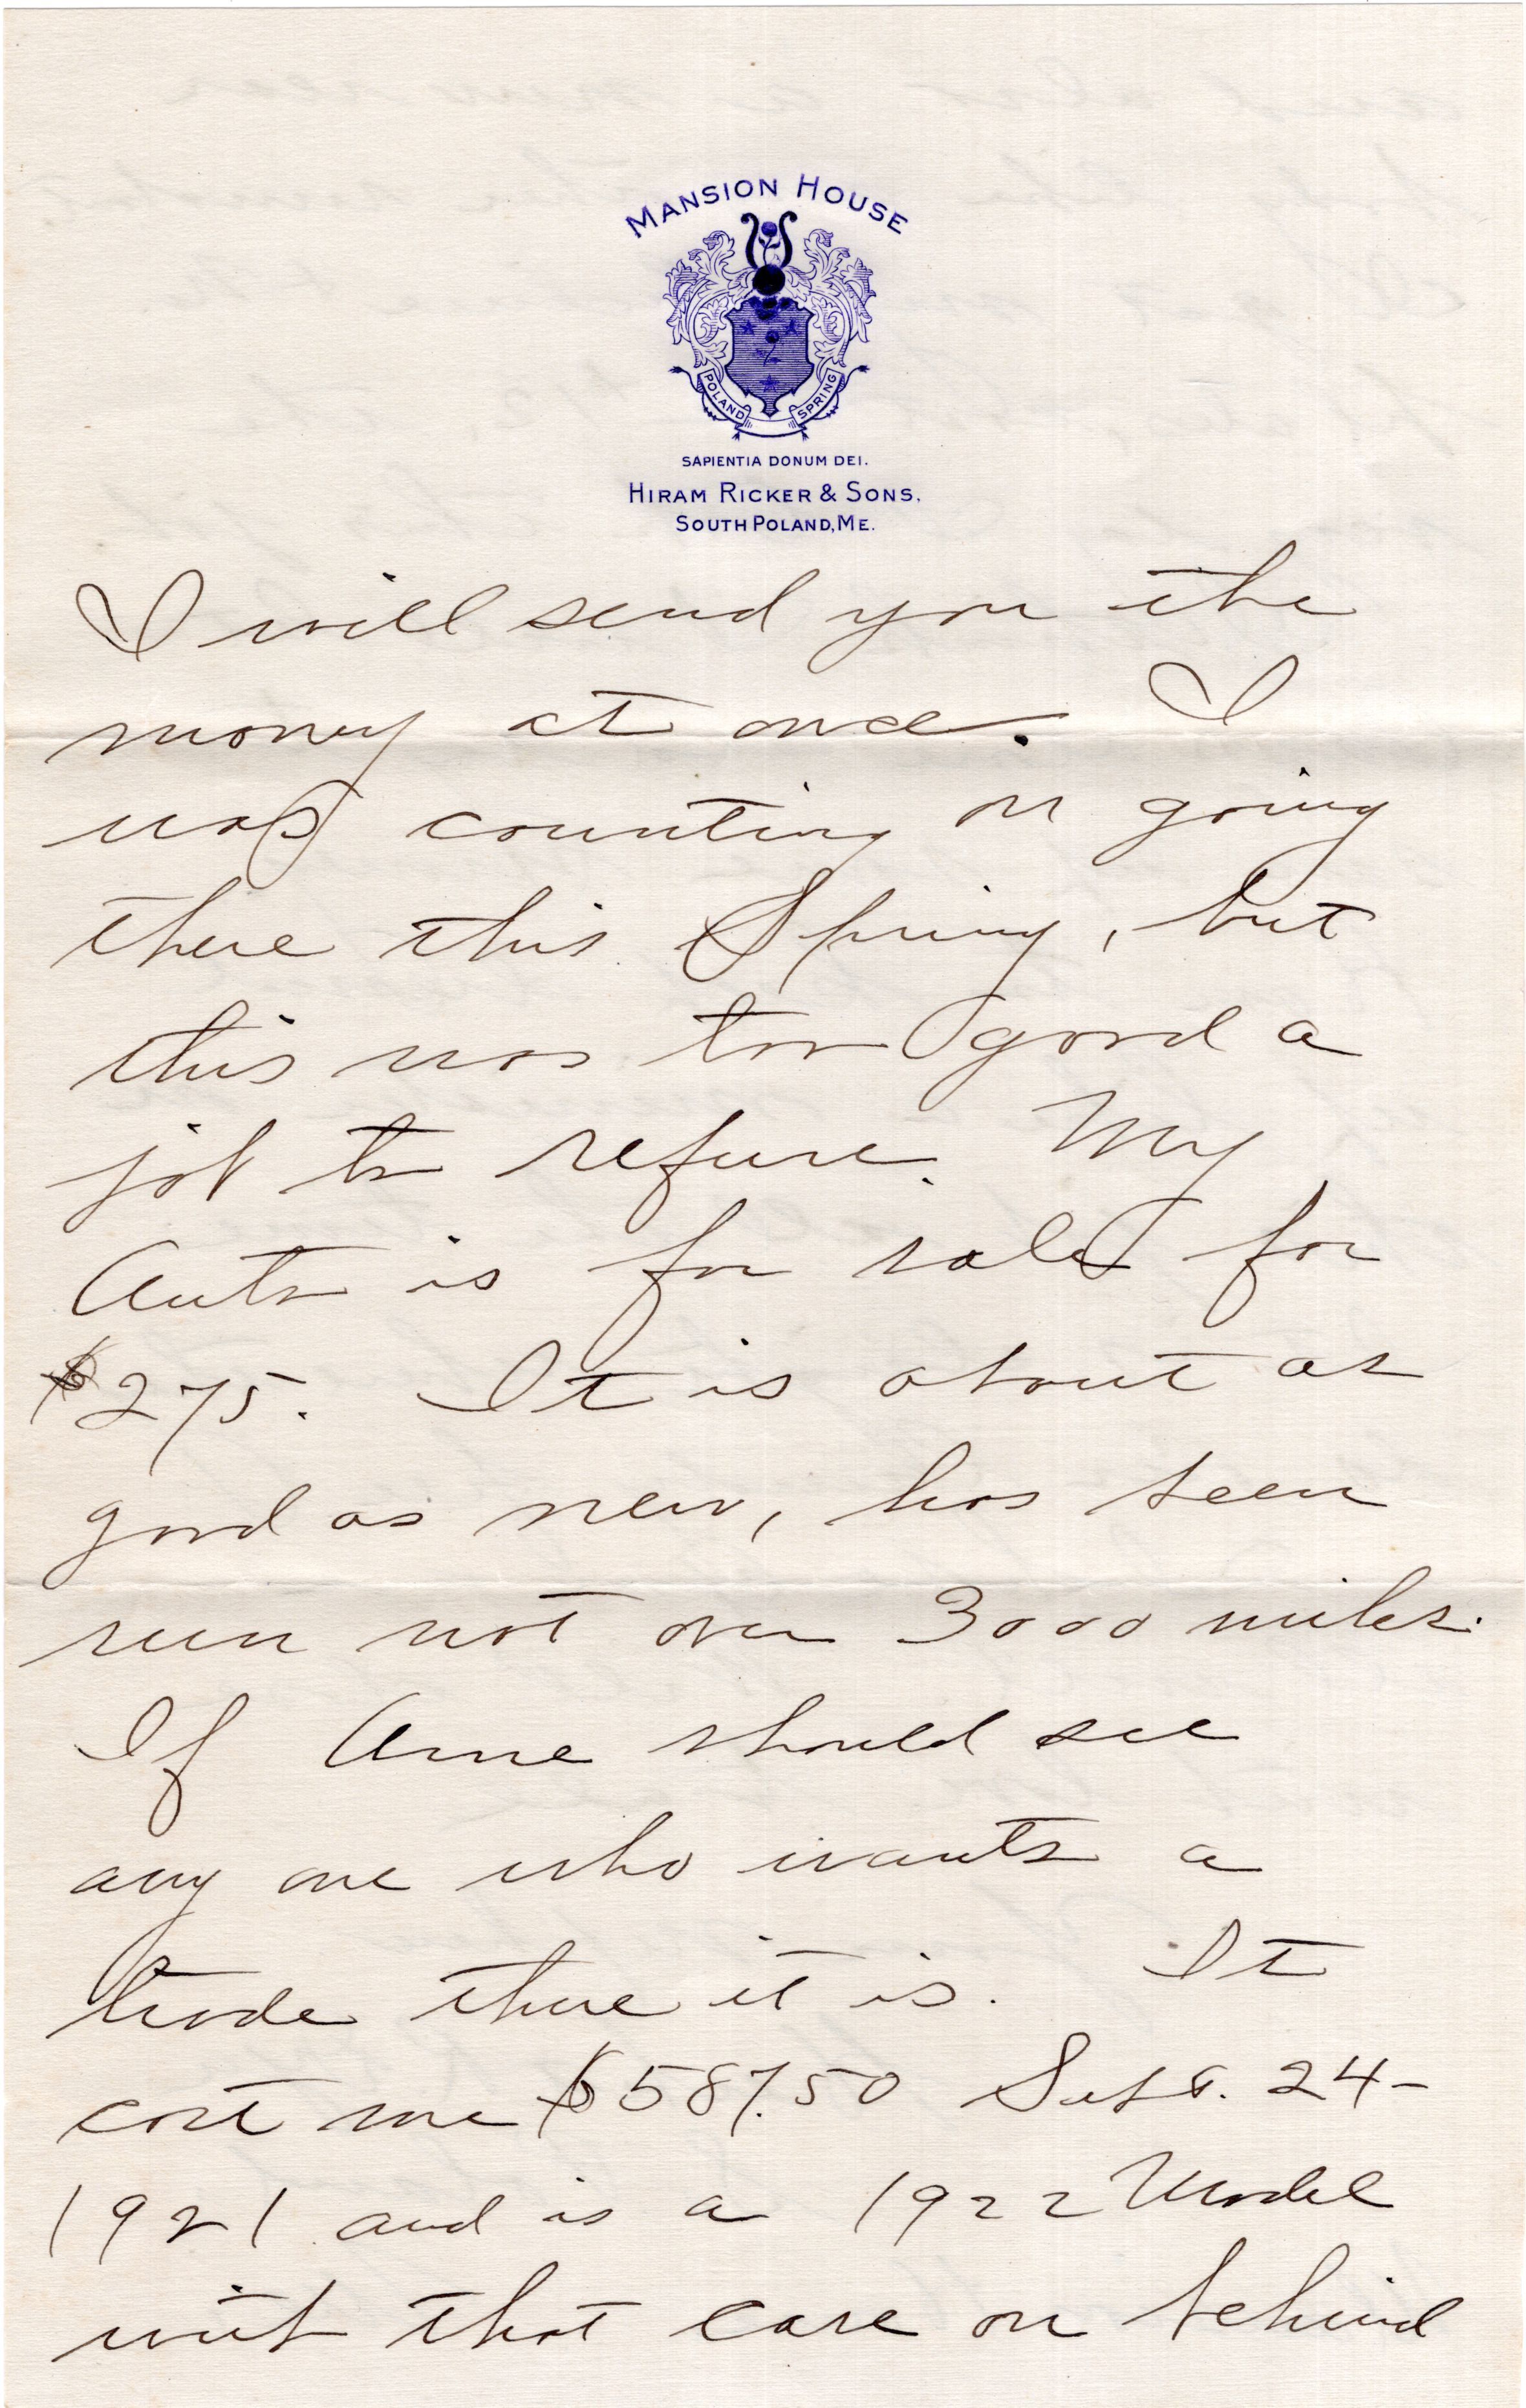 MANSION HOUSE
POLAND SPRING
SAPIENTIA DONUM DEI.
HIRAM RICKER & SONS.
SOUTH POLAND, ME.
I will send you the
money at once. I
was counting on going
there this Spring, but
this was too good a
job to refuse. My
Auto is for sale for
$275. It is about as
good as new, has been
run not over 3000 miles.
If Arne should see
any one who wants a
trade there it is. It
cost me $587.50 Sept. 24-
1921 and is a 1922 Model
with that case on behind